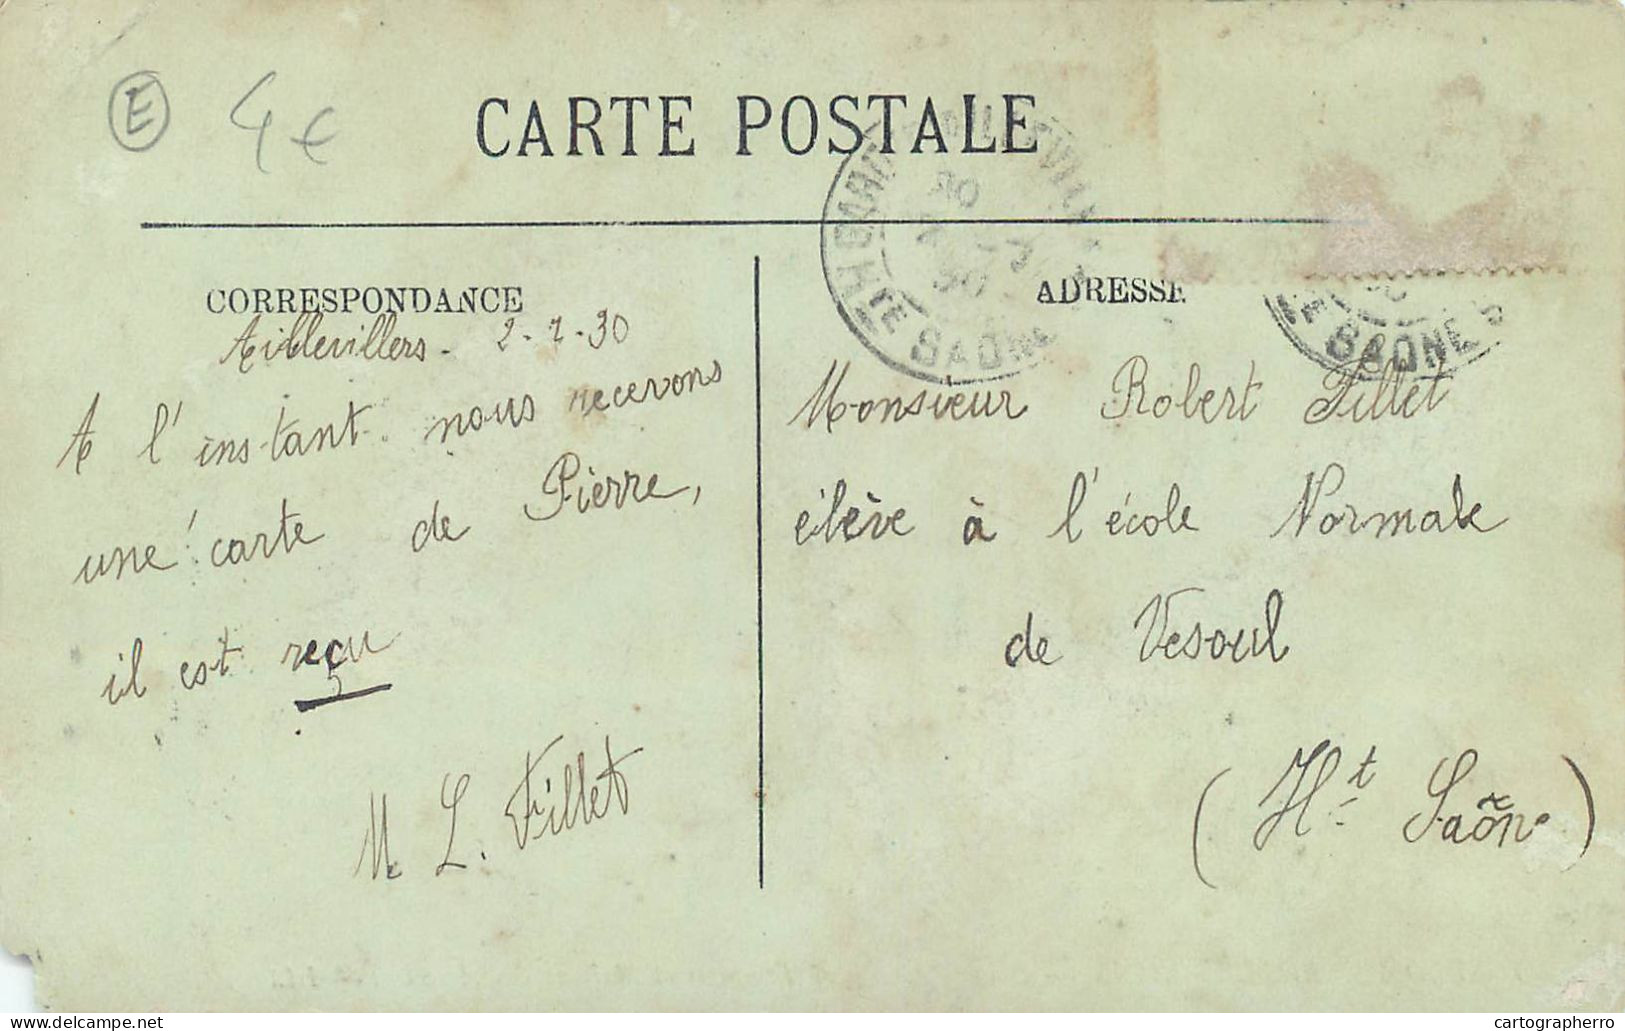 E 4€
CARTE POSTALE
CORRESPONDANCE
Aillevillers - 2-7-30
A l'instant nous recevons
une carte de Pierre,
il est reçu
M L. Fillet
GARE D'AILLEVILLERS
HTE SAÔNE
ADRESSE
TE SAÔNE
Monsieur Robert Fillet
élève à l'école Normale
de Vesoul
(Ht Saône)
delcampe.net
cartographerro